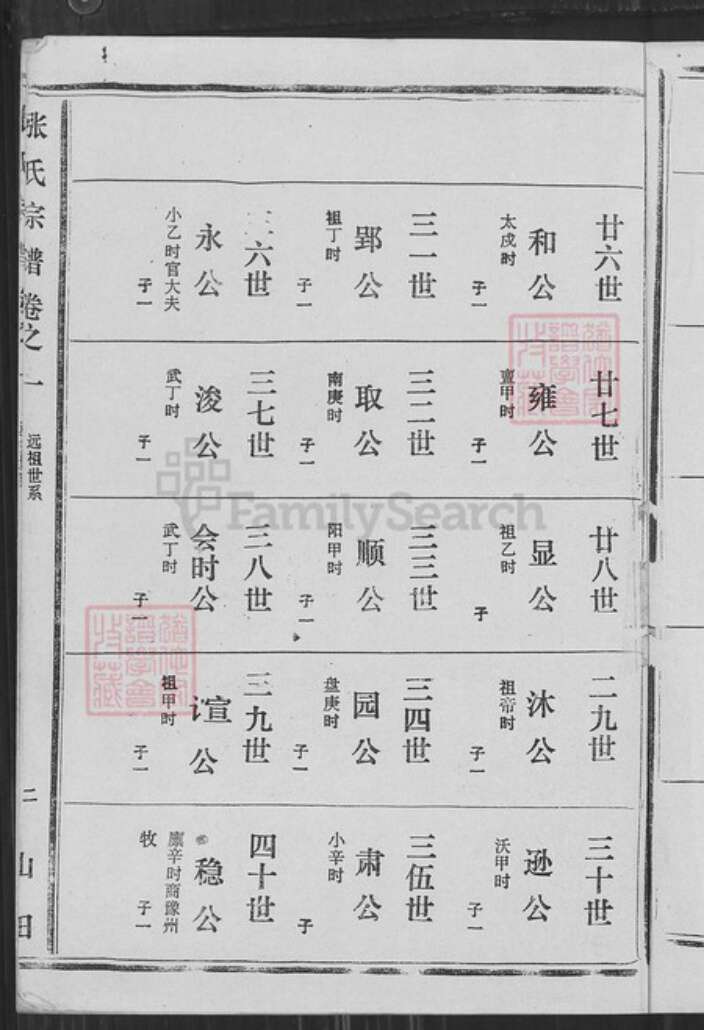 张氏宗谱卷之一
远祖世系
二
山田
廿六世
和公
太戍时
子一
廿七世
雍公
亶甲时
子一
廿八世
显公
祖乙时
子
二九世
沐公
祖帝时
子一
三十世
逊公
沃甲时
子一
三一世
郢公
祖丁时
子一
三二世
取公
南庚时
子一
三三世
顺公
阳甲时
子一
三四世
园公
盘庚时
子一
三伍世
肃公
小辛时
子
六世
永公
小乙时官大夫
子一
三七世
浚公
武丁时
子一
三八世
会时公
武丁时
子一
三九世
谊公
祖甲时
子一
四十世
稳公
廪辛时商豫州
牧
子一
FamilySearch